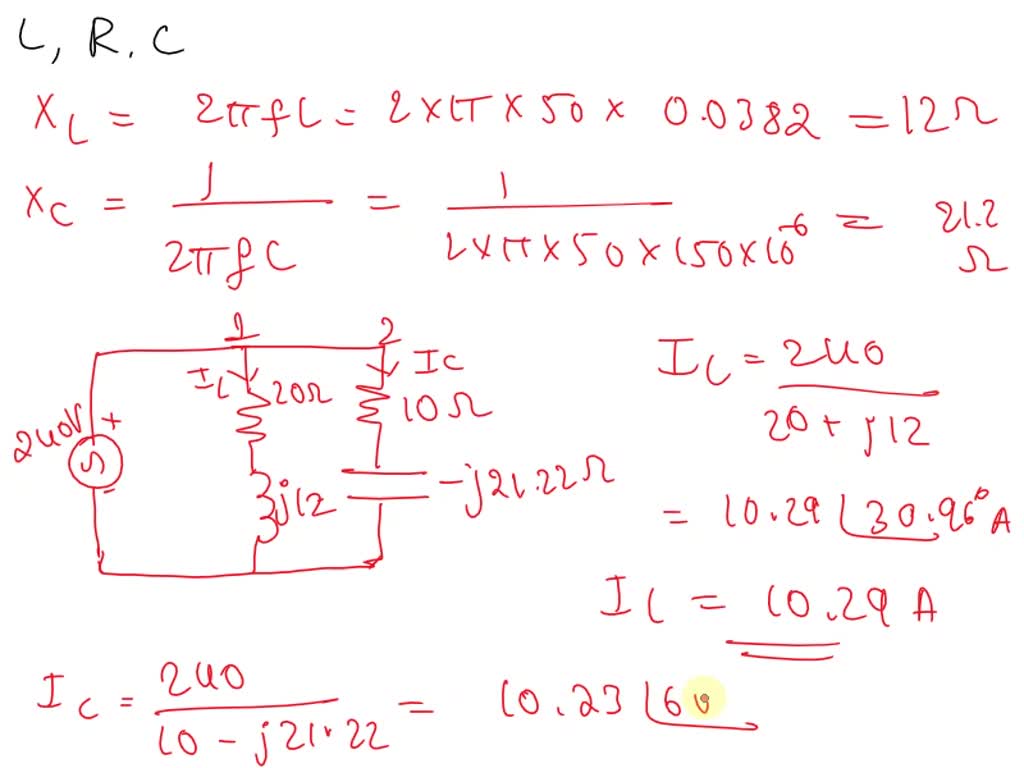 L, R, C
X_L = 2πfL = 2×π×50× 0.0382 = 12Ω
X_C = 1 / 2πfC = 1 / 2×π×50×150×10^-6 = 21.2 Ω
1 2
I_L 20Ω I_C 10Ω
240V + -
j12 -j21.22Ω
I_L = 240 / 20 + j12
= 10.29 ∠30.96° A
I_L = 10.29 A
I_C = 240 / 10 - j21.22 = 10.23 ∠6